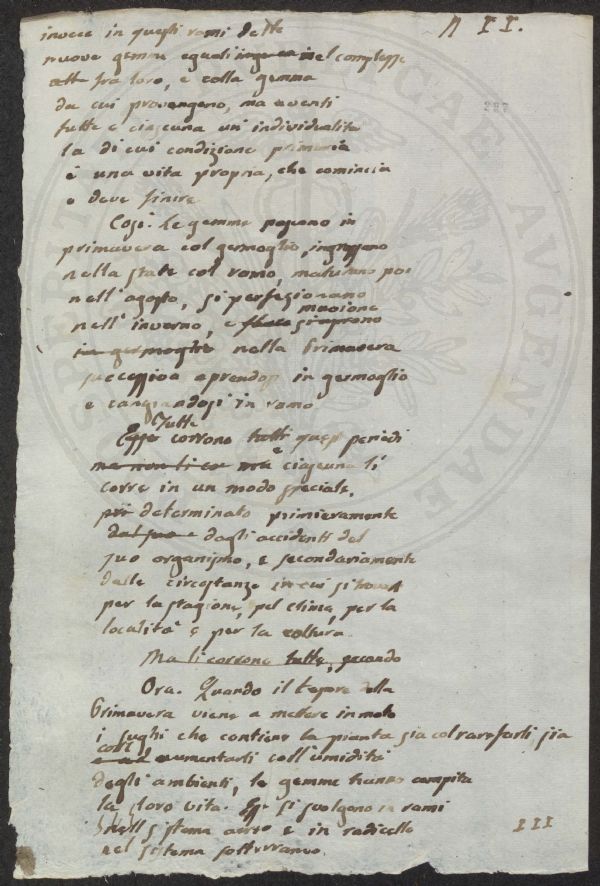 N II.
invece in quegli rami dette
nuove gemme eguali nel complesso
fra loro, e colla gemma
da cui provengono, ma aventi
tutte e ciascuna un' individualità
la di cui condizione primaria
è una vita propria, che comincia
e deve finire
287
Così. Le gemme nascono in
primavera col germoglio, ingrossano
nella state col ramo, maturano poi
nell' agosto, si perfezionano
nell' inverno, e muoiono
si aprono
in germoglio nella Primavera
successiva aprendosi in germoglio
e cangiandosi in ramo
Tutte
Esse corrono tutti questi periodi
ma e ciascuna li
corre in un modo speciale,
determinato primieramente
dal suo e dagli accidenti del
suo organismo, e secondariamente
dalle circostanze in cui si trova
per la stagione, pel clima, per la
località e per la coltura.
Ma li corrono tutte, secondo
Ora. Quando il tepore della
Primavera viene a mettere in moto
i sughi che contiene la pianta sia col rarefarli sia
coll'
aumentarli coll' umidità
degli ambienti, le gemme hanno compita
la loro vita. Esse si svolgono in rami
nell sistema aereo e in radicelle
nel sistema sotterraneo.
III